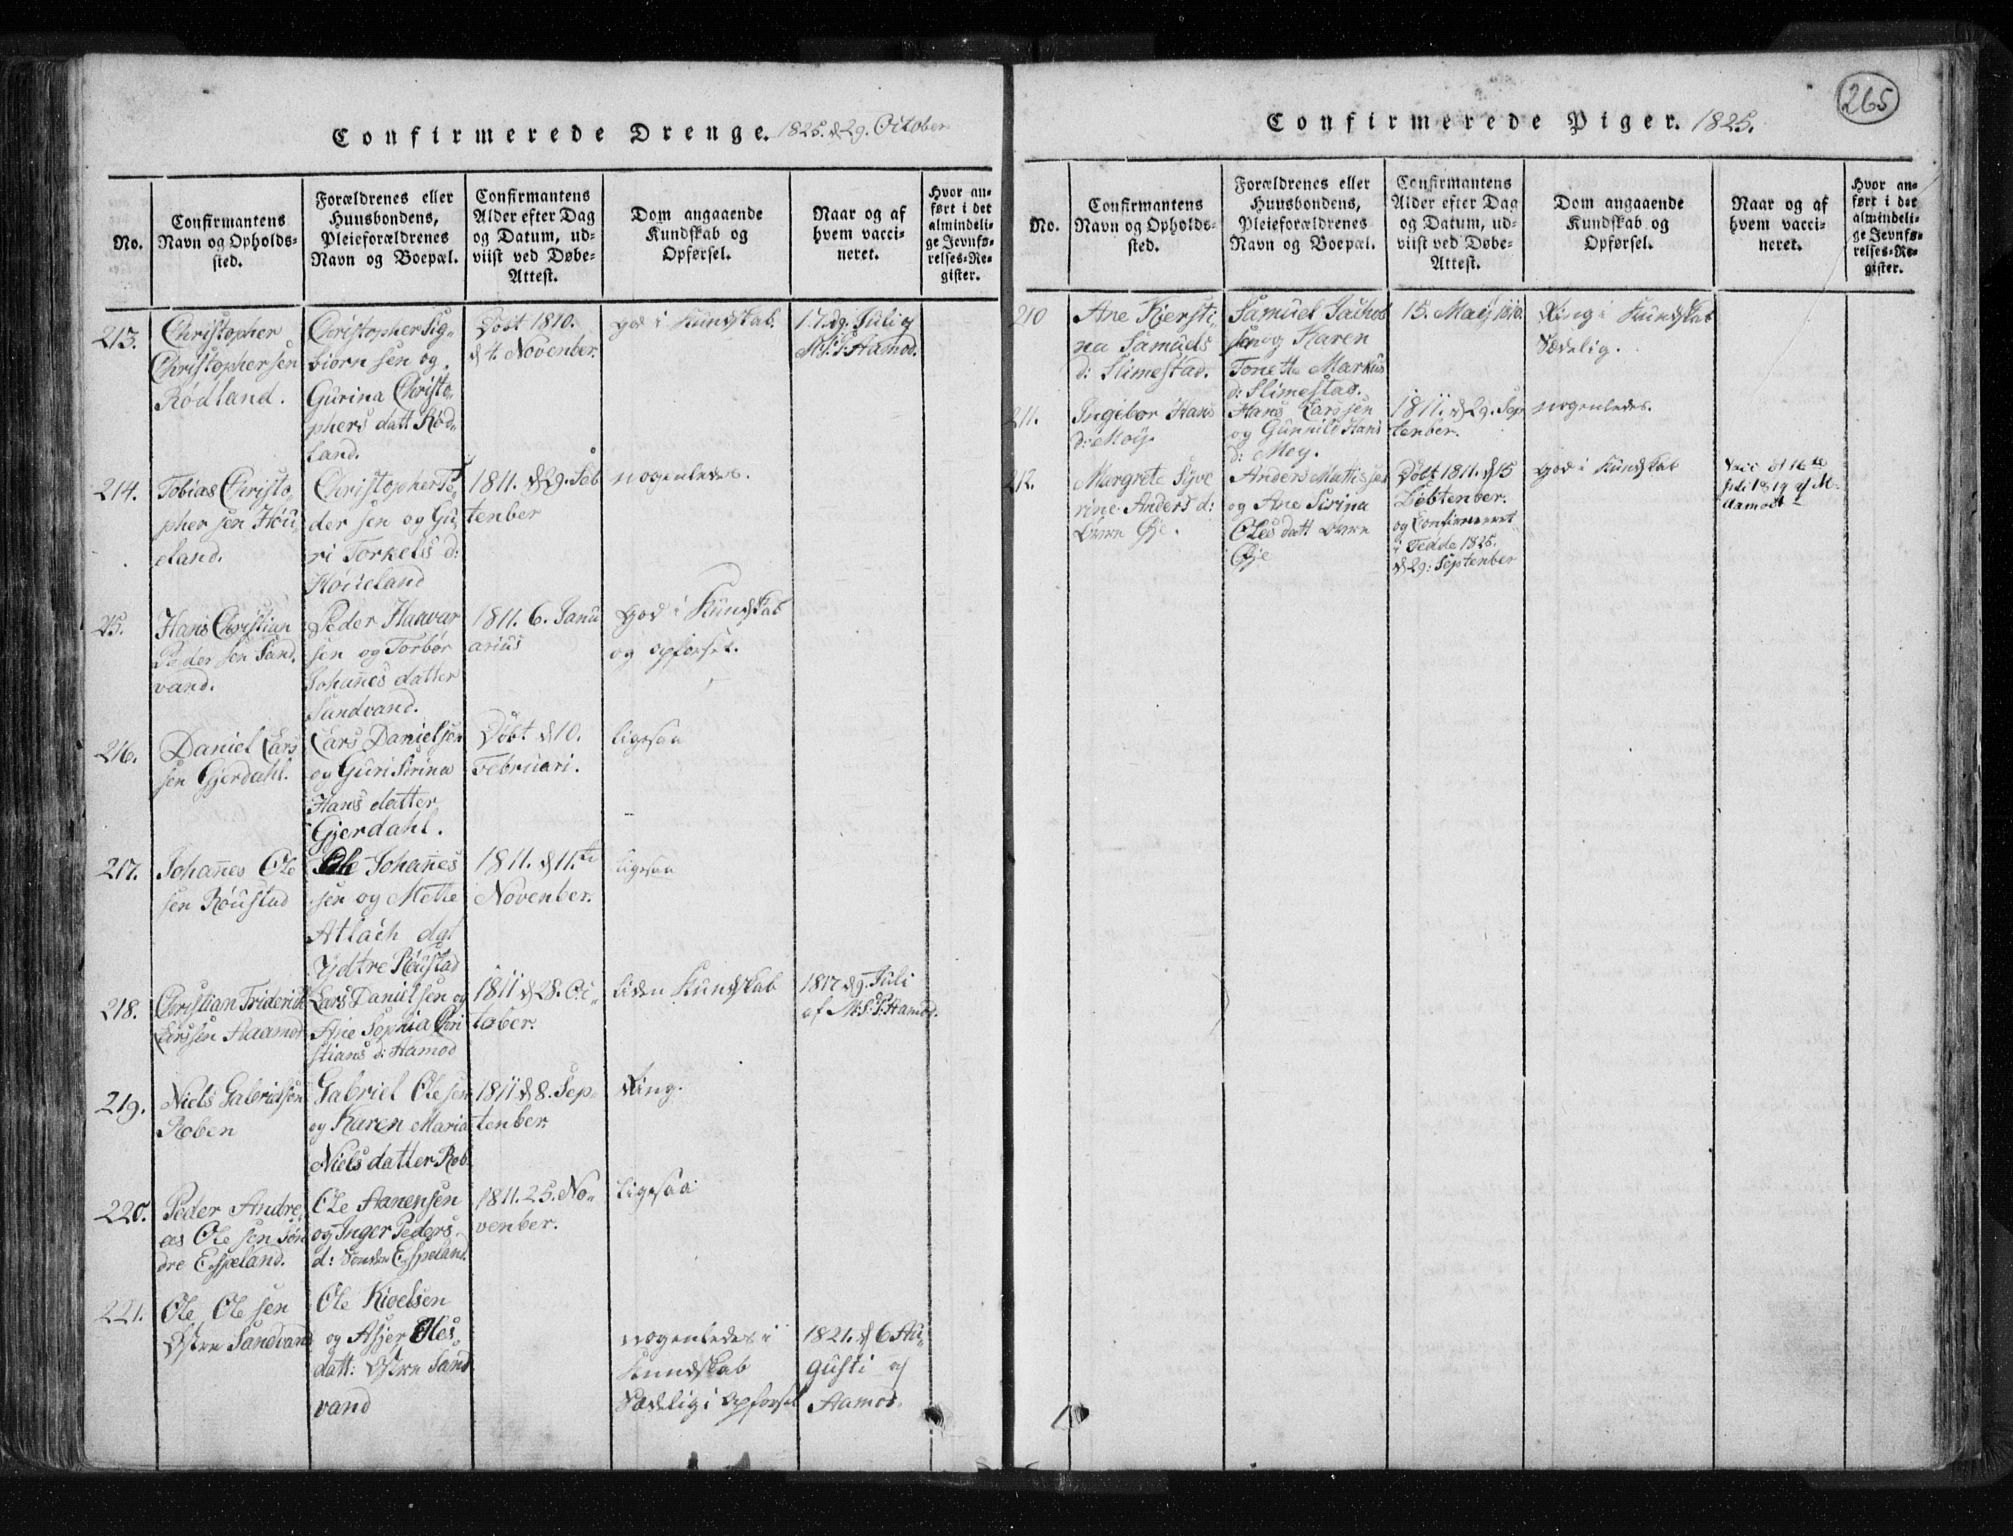 265
Confirmerede Drenge. 1825. d 29. October
No.
Confirmantens
Navn og Opholds-
sted.
Forældrenes eller
Huusbondens,
Pleieforældrenes
Navn og Boepæl.
Confirmantens
Alder efter Dag
og Datum, ud-
viist ved Døbe-
Attest.
Dom angaaende
Kundskab og
Opførsel.
Naar og af
hvem vacci-
neret.
Hvor an-
ført i det
almindeli-
ge Jevnfø-
relses-Re-
gister.
213.
Christopher
Christophersen
Rødland.
Christopher Sig-
biørnsen og
Gurina Christo-
phers datt Rød-
land.
Døbt 1810.
d 4. November.
god i Kundskab.
17. d 9. Juli af
M. S. Aamod.
214.
Tobias Christo-
phersen Höu-
eland.
Christopher Pe-
dersen og Gu-
ri Torkels d:
Höueland
1811. d 29. Seb
tember
nogenledes.
25.
Hans Christian
Pedersen Sand-
vand.
Peder Haavar
sen og Torbør
Johanes datter
Sandvand.
1811. 6. Janu
arius
god i Kundskab
og opførsel.
216.
Daniel Lars
sen Gjerdahl.
Lars Danielsen
og Guri Sirina
Hans datter
Gjerdahl.
Döbt d 10.
Februari.
ligesaa
217.
Johanes Ole
sen Röustad
Ole Johanes
sen og Mette
Atlach dat
Ydtre Röustad
1811. d 11.te
November.
ligesaa
218.
Christian Friderich
Larssen Aaamod
Lars Danielsen og
Ane Sophia Chri
stians d: Aamod
1811 d 28. Oc-
tober.
liden Kundskab
1817 d 9. Juli
af M. S. Aamod.
219.
Niels Gabrielsen
Roben
Gabriel Olesen
og Karen Maria
Niels datter Rob
1811 d 8. Sep-
tember.
Ring.
220.
Peder Andre-
as Olesen Søn
dre Espeland.
Ole Aanensen
og Inger Peders
d: Søndre Espeland.
1811. 25. No-
vember.
ligesaa
221.
Ole Olesen
Østre Sandvand
Ole Kioelsen
og Asjer Oles
datt: Østre Sand
vand
nogenledes i
Kundskab
Sædelig i Opførsel
1821. d 6 Au-
gusti af
Aamod.
Confirmerede Piger. 1825.
No.
Confirmantens
Navn og Opholds-
sted.
Forældrenes eller
Huusbondens,
Pleieforældrenes
Navn og Boepæl.
Confirmantens
Alder efter Dag
og Datum, ud-
viist ved Døbe-
Attest.
Dom angaaende
Kundskab og
Opførsel.
Naar og af
hvem vacci-
neret.
Hvor an-
ført i det
almindeli-
ge Jevnfø-
relses-Re-
gister.
210
Ane Kjersti-
na Samuels
d: Slimestad.
Samuel Jachob
sen og Karen
Tonette Markus
d: Slimestad.
15. Maij 1810.
Ring i Kundskab
Sædelig.
211.
Ingebor Hans
d: Moij.
Hans Larssen
og Gunnild Hans
d: Moy.
1811. d 29. Sep
tember.
nogenledes.
212.
Margrete Syve
rine Anders d:
Övre Øje.
Anders Matissen
og Ane Sirina
Oles datt Övre
Øje
Døbt 1811. d 15
Sebtember.
og Confirmeret
i Fedde 1825.
d 29: September
god i Kundskab
Vacc d 16te
Juli 1819 af M.
Aamodt